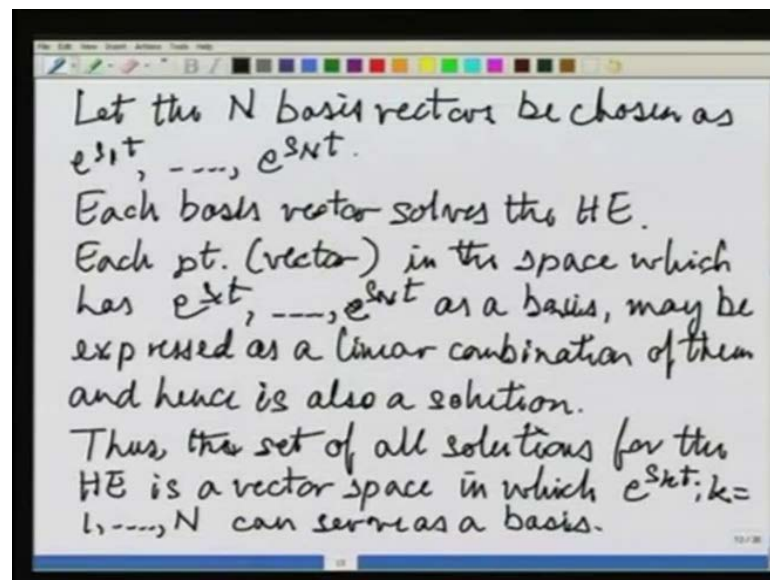 File Edit View Insert Actions Tools Help
Let the N basis vectors be chosen as
e^{s_1 t}, ----, e^{s_N t}.
Each basis vector solves the HE.
Each pt. (vector) in the space which
has e^{s_1 t}, ----, e^{s_N t} as a basis, may be
expressed as a linear combination of them
and hence is also a solution.
Thus, the set of all solutions for the
HE is a vector space in which e^{s_k t}; k=
1, ----, N can serve as a basis.